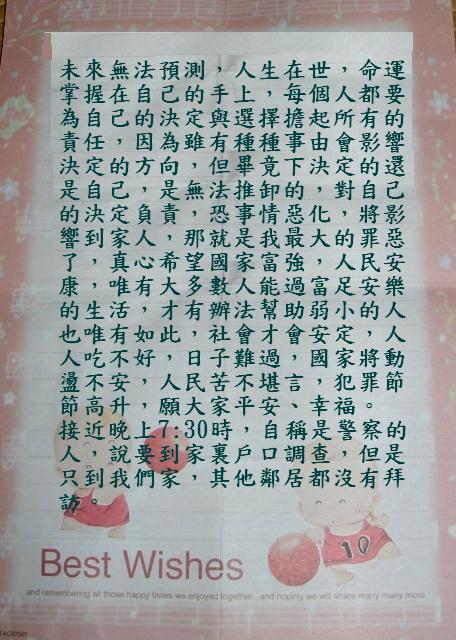 未來無法預測，人生在世，命運
掌握在自己的手上，每個人都要
為自己的決定與選擇擔起所有的
責任，因為雖有種種事由會影響
決定的方向，但畢竟下決定的還
是自己，是無法推卸的，對自己
的決定負責，恐事情惡化，將影
響到家人，那就是我最大的罪惡
了，真心希望國家富強，人民安
康，唯有大多數人能過富足安樂
的生活，才有辦法幫助弱小的人
也唯有如此，社會才會安定，人
人吃不好，日子難過，國家將動
盪不安，人民苦不堪言，犯罪節
節高升，願大家平安、幸福。
接近晚上7:30時，自稱是警察的
人，說要到家裏戶口調查，但是
只到我們家，其他鄰居都沒有拜
訪。
10
Best Wishes
and remembering all those happy times we enjoyed together and hoping we will share many many more